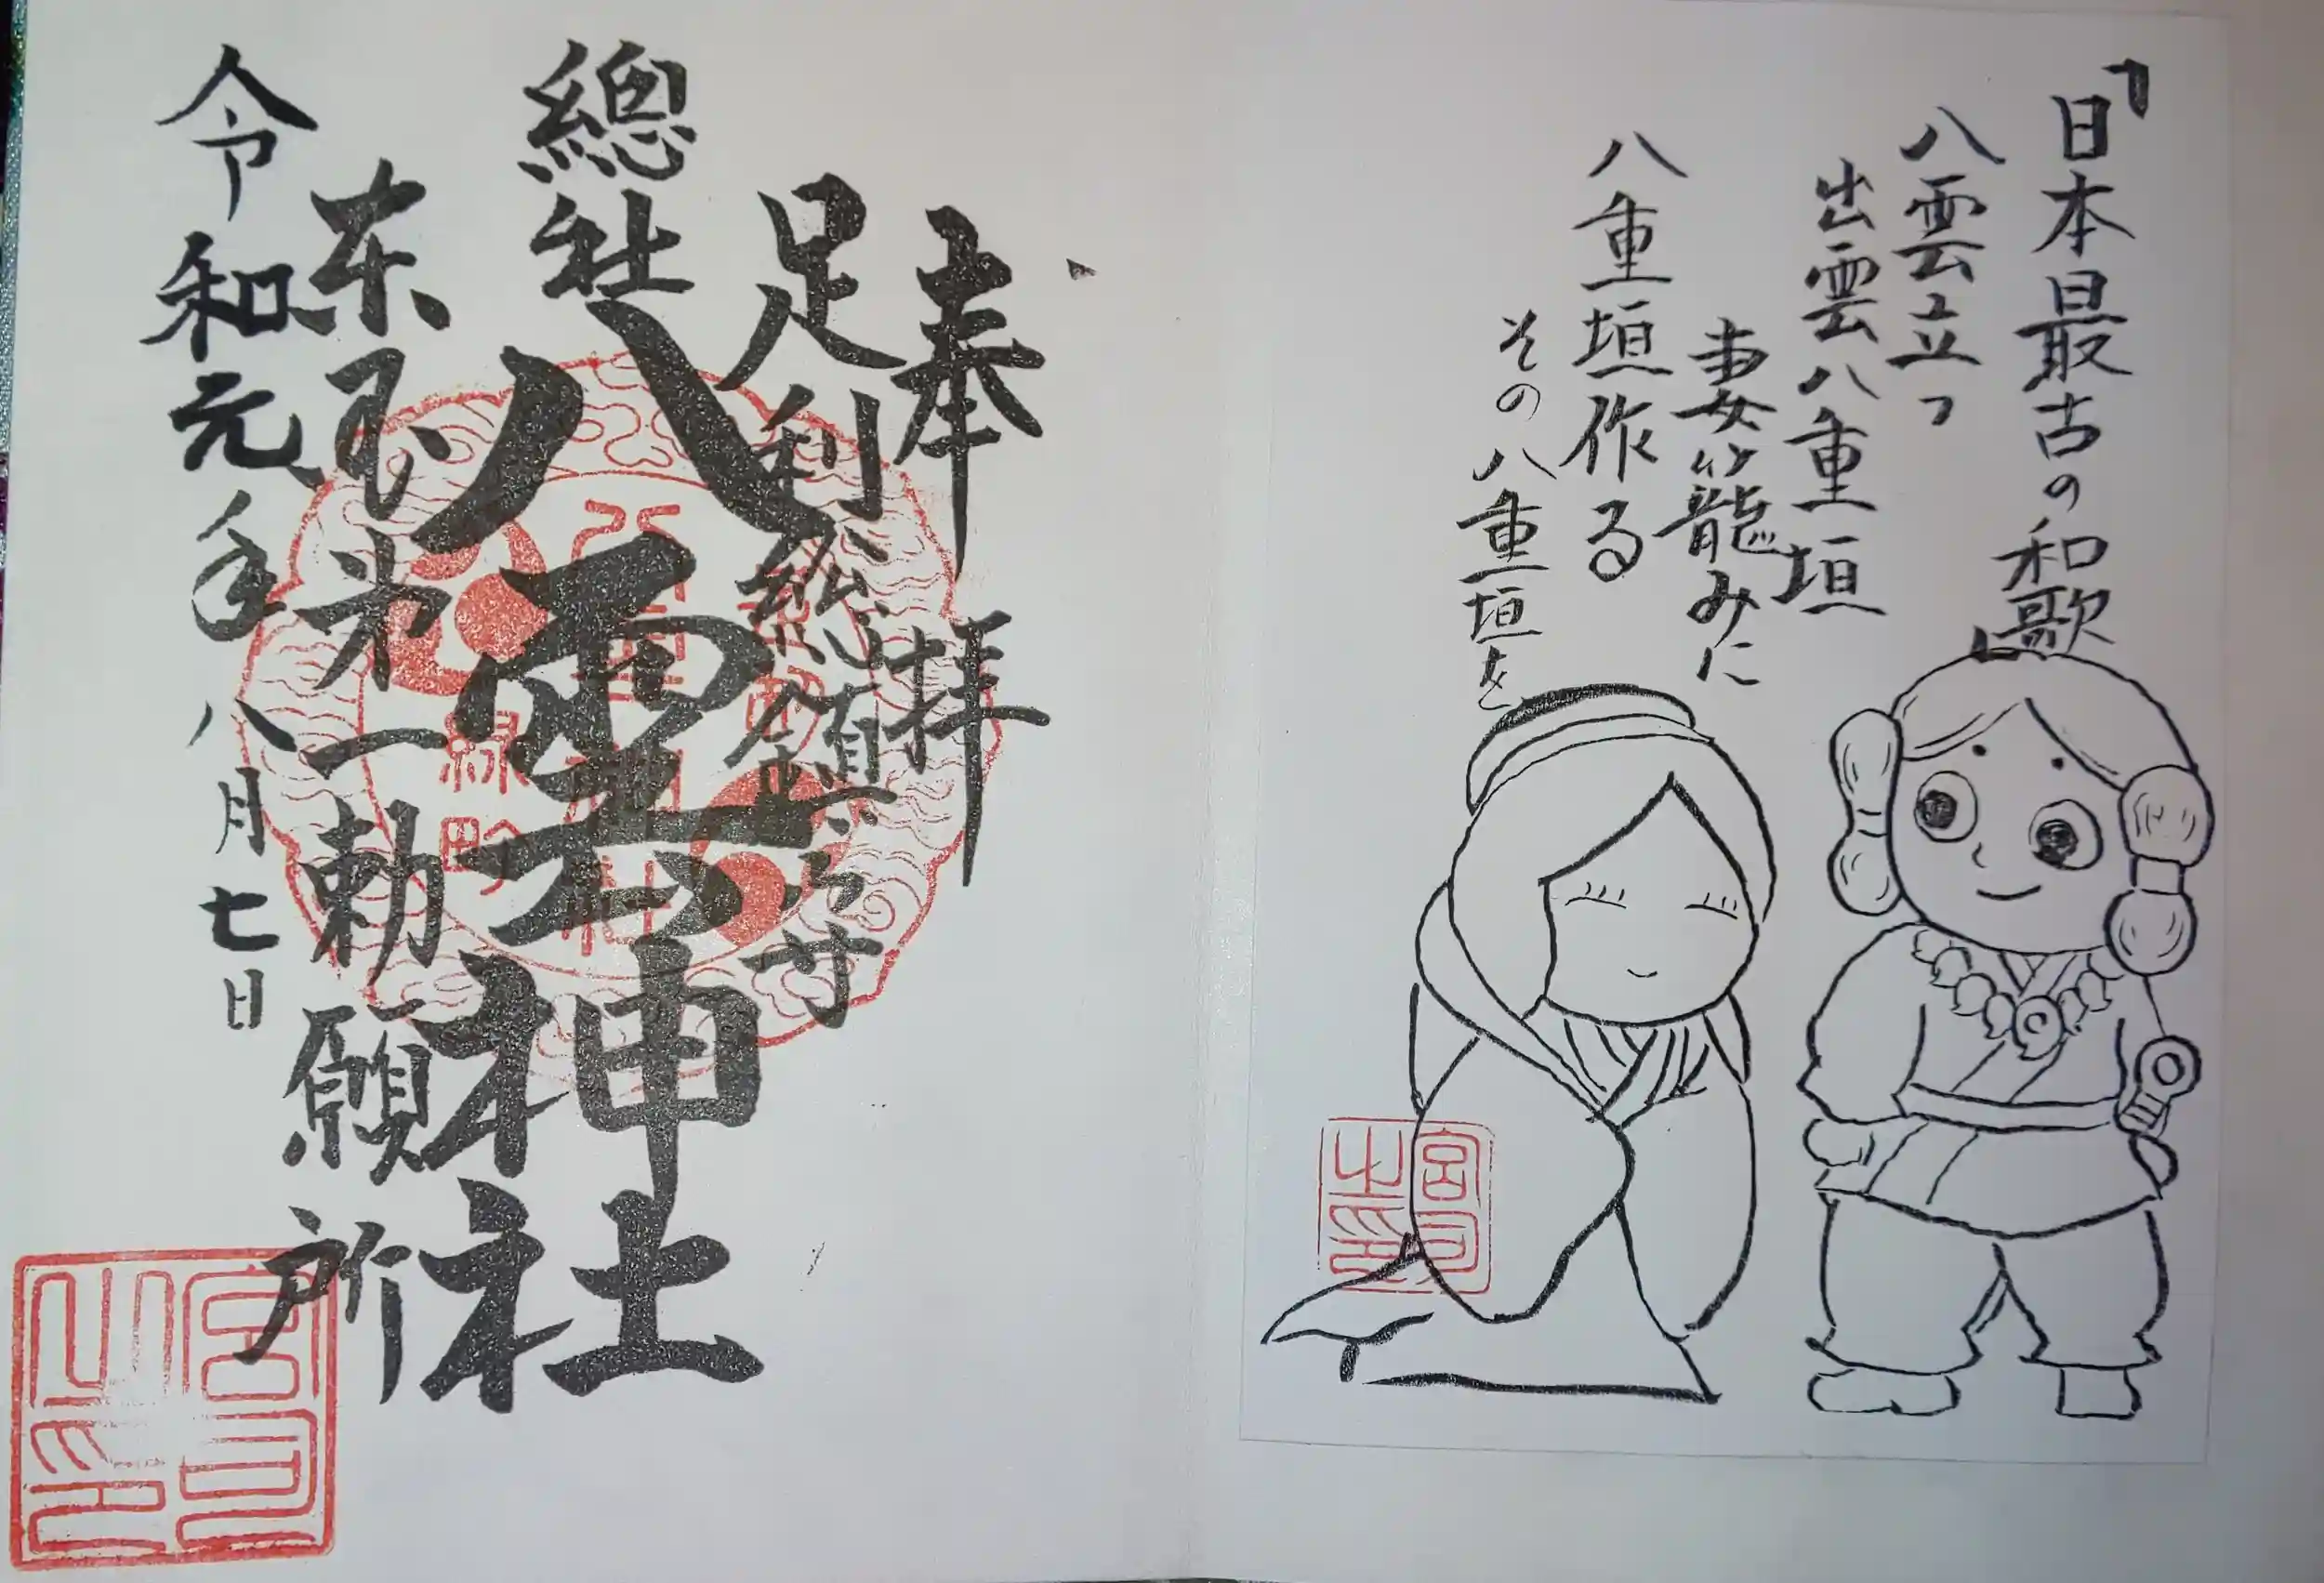 「日本最古の和歌」
八雲立つ
出雲八重垣
妻籠みに
八重垣作る
その八重垣を
宮司之印
奉拝
足利総鎮守
總社
八雲神社
東国第一勅願所
令和元年八月七日
宮司之印